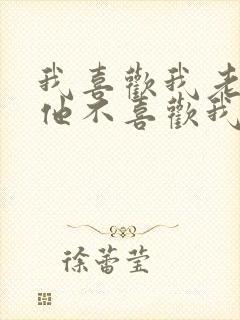 我喜歡我老
他不喜歡我
徐蕾莹